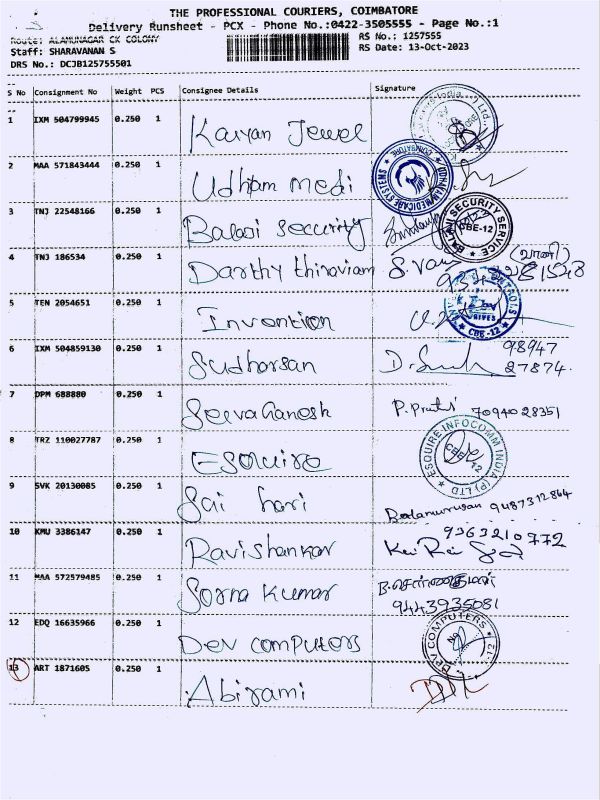 THE PROFESSIONAL COURIERS, COIMBATORE
Delivery Runsheet - PCX - Phone No.:0422-3505555 - Page No.:1
Route: ALAMUNAGAR CK COLONY
RS No.: 1257555
Staff: SHARAVANAN S
RS Date: 13-Oct-2023
DRS No.: DCJB125755501
S No Consignment No Weight PCS Consignee Details Signature
1 IXM 504799945 0.250 1 Kaiyan Jewel
2 MAA 571843444 0.250 1 Udham medi
UDHAYAM MEDICARE SYSTEMS
3 TNJ 22548166 0.250 1 Balaji Security
BALAJI SECURITY SERVICE
CBE-12
4 TNJ 186534 0.250 1 Darthy thiraviam S. Vani (வாணி)
5 TEN 2054651 0.250 1 Invention
CBE-12
6 IXM 504859130 0.250 1 Sudharsan 98947
27874
7 DPM 688880 0.250 1 SeevaGanesh P. Prathi 7094028351
8 TRZ 110027787 0.250 1 Esquire
ESQUIRE INFOCOMM INDIA (P) LTD
CBE 12
9 SVK 20130085 0.250 1 Sai hari Balamurugan 9487312864
10 KMU 3386147 0.250 1 Ravishankar 9363210772
11 MAA 572579485 0.250 1 Sorna kumar
9443935081
12 EDQ 16635966 0.250 1 Dev computers
DEV COMPUTERS
13 ART 1871605 0.250 1 Abirami